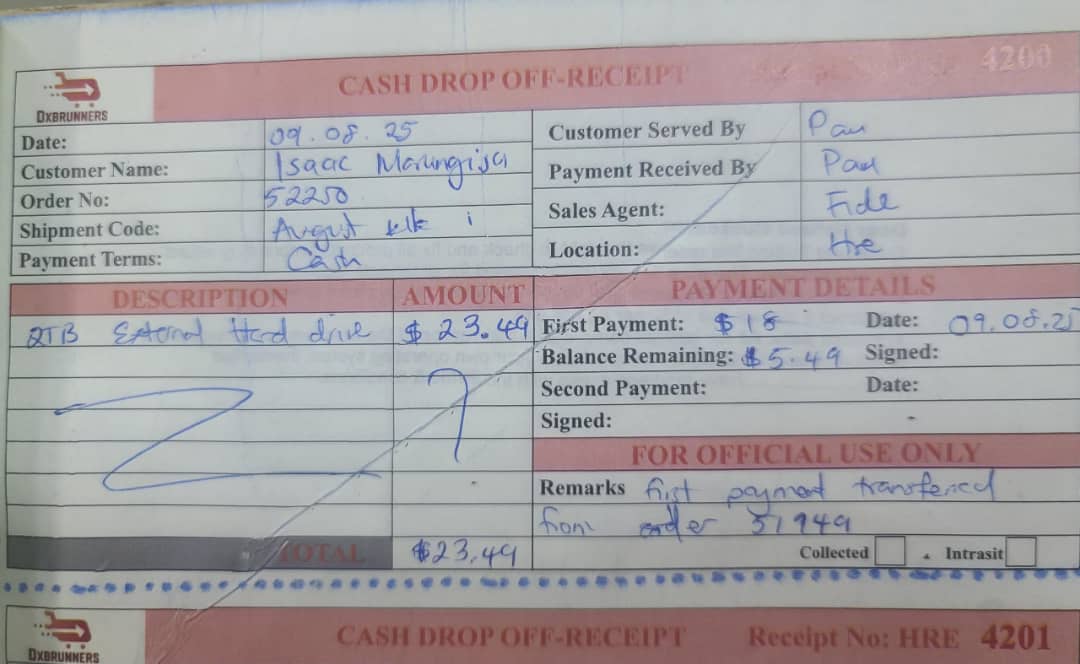 CASH DROP OFF-RECEIPT 4200
OXBRUNNERS
Date: 09.08.25
Customer Served By Pau
Customer Name: Isaac
Payment Received By Pau
Order No: 52250
Sales Agent: Fide
Shipment Code: August
Location: Hre
Payment Terms: Cash
DESCRIPTION AMOUNT PAYMENT DETAILS
2TB External Hard drive $23.49
First Payment: $18 Date: 09.08.25
Balance Remaining: $5.49 Signed:
Second Payment: Date:
Signed:
FOR OFFICIAL USE ONLY
Remarks first payment transferred
from order 51949
TOTAL $23.49
Collected Intrasit
OXBRUNNERS
CASH DROP OFF-RECEIPT Receipt No: HRE 4201